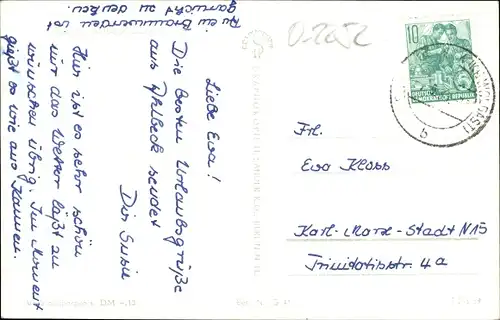 Liebe Eva!
Die besten Urlaubsgrüße
aus Ahlbeck sendet
Dir Susin
Hier ist es sehr schön
nur das Wetter läßt zu
wünschen übrig. Im Moment
gießt es wie aus Kannen.
ein Braunwerden ist
garnicht zu denken.
0-2252
10
DEUTSCHE
DEMOKRATISCHE REPUBLIK
b
Frl.
Eva Kloss
Karl-Marx-Stadt N15
Trinitatisstr. 4a